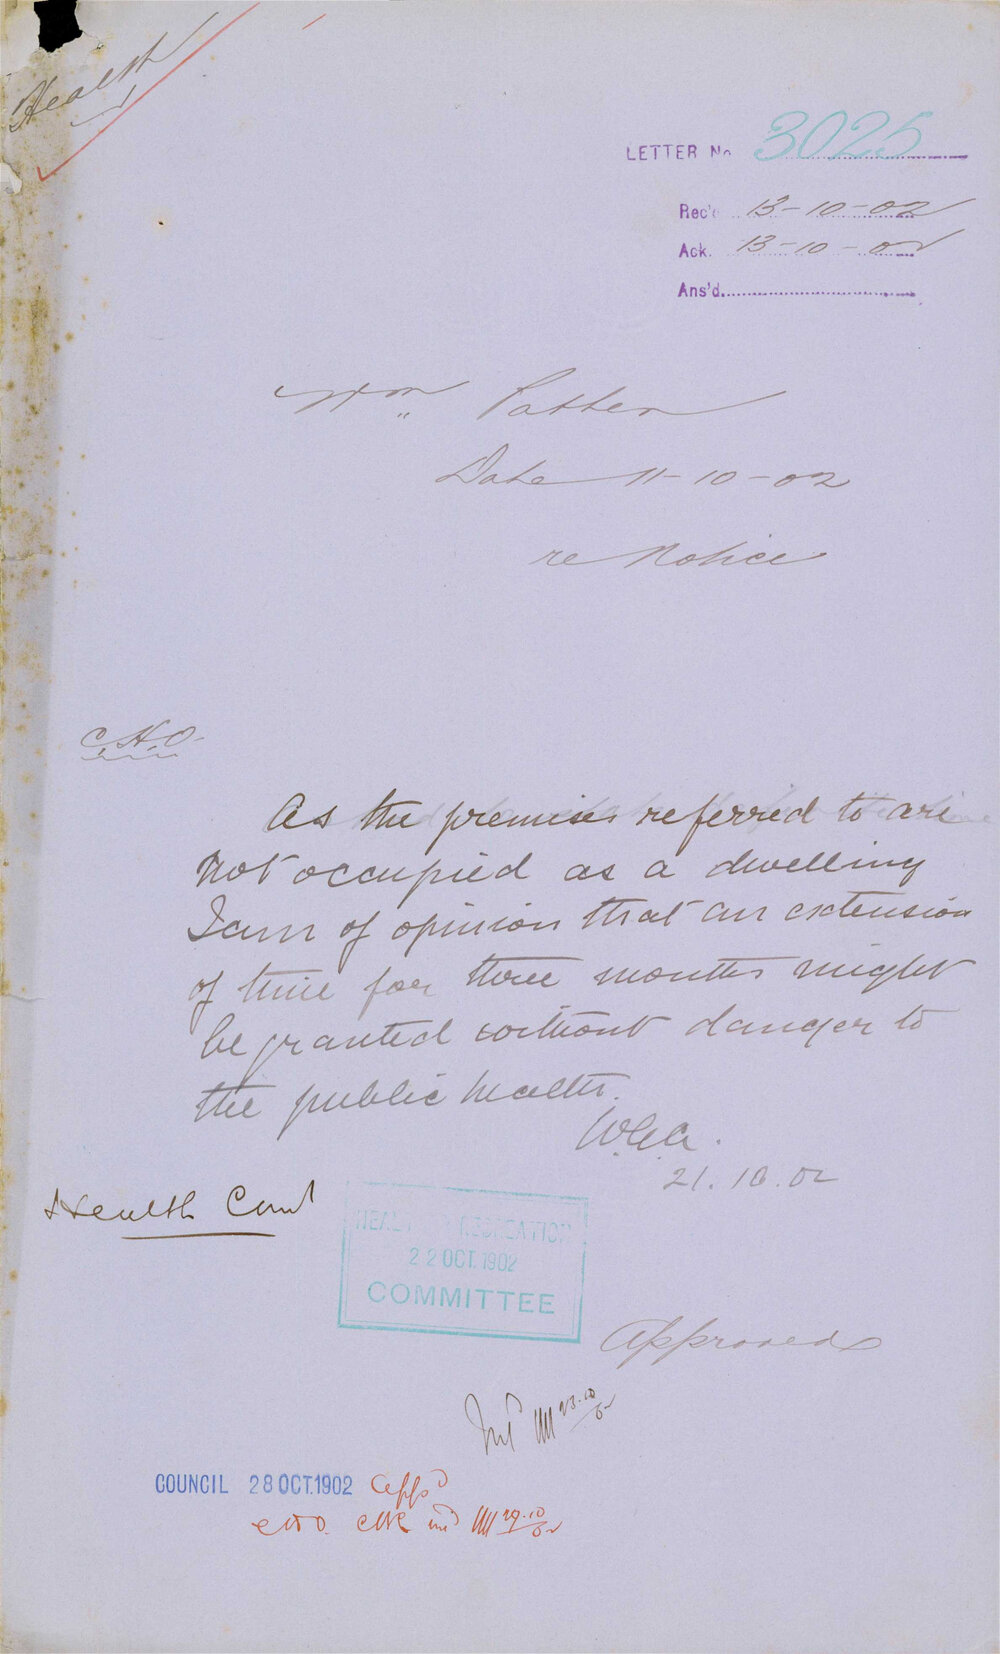 Health
LETTER No. 3025
Rec'd 13-10-02
Ack. 13-10-02
Ans'd.
Wm Patten
Date 11-10-02
re Notice
C.H.O.
As the premises referred to are
not occupied as a dwelling
I am of opinion that an extension
of time for three months might
be granted without danger to
the public health.
21.10.02
Health Comt
HEALTH RECREATION
22 OCT. 1902
COMMITTEE
Approved
23.10/02
COUNCIL 28 OCT. 1902 Appd
CHO. 29.10/02